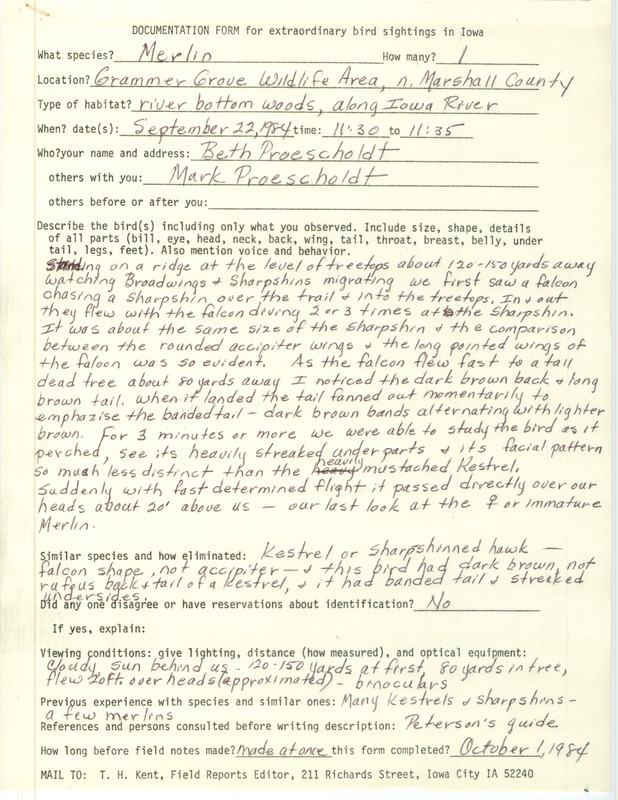 DOCUMENTATION FORM for extraordinary bird sightings in Iowa
What species? Merlin How many? 1
Location? Grammer Grove Wildlife Area, n. Marshall County
Type of habitat? river bottom woods, along Iowa River
When? date(s): September 22, 1984 time: 11:30 to 11:35
Who? your name and address: Beth Proescholdt
others with you: Mark Proescholdt
others before or after you:
Describe the bird(s) including only what you observed. Include size, shape, details
of all parts (bill, eye, head, neck, back, wing, tail, throat, breast, belly, under
tail, legs, feet). Also mention voice and behavior.
Standing on a ridge at the level of treetops about 120-150 yards away
watching Broadwings & Sharpshins migrating we first saw a falcon
chasing a Sharpshin over the trail & into the treetops. In & out
they flew with the falcon diving 2 or 3 times at the Sharpshin.
It was about the same size of the Sharpshin & the comparison
between the rounded accipiter wings & the long pointed wings of
the falcon was so evident. As the falcon flew fast to a tall
dead tree about 80 yards away I noticed the dark brown back & long
brown tail. When it landed the tail fanned out momentarily to
emphazise the banded tail - dark brown bands alternating with lighter
brown. For 3 minutes or more we were able to study the bird as it
perched, see its heavily streaked under parts & its facial pattern
so much less distinct than the heavily mustached Kestrel.
Suddenly with fast determined flight it passed directly over our
heads about 20' above us - our last look at the ♀ or immature
Merlin.
Similar species and how eliminated: Kestrel or Sharpshinned hawk -
falcon shape, not accipiter - & this bird had dark brown, not
rufous back & tail of a kestrel, & it had banded tail & streaked
undersides.
Did any one disagree or have reservations about identification? No
If yes, explain:
Viewing conditions: give lighting, distance (how measured), and optical equipment:
Cloudy, sun behind us - 120-150 yards at first, 80 yards in tree,
flew 20ft. over heads (approximated) - binoculars
Previous experience with species and similar ones: Many Kestrels & Sharpshins -
a few merlins
References and persons consulted before writing description: Peterson's guide
How long before field notes made? made at once this form completed? October 1, 1984
MAIL TO: T. H. Kent, Field Reports Editor, 211 Richards Street, Iowa City IA 52240